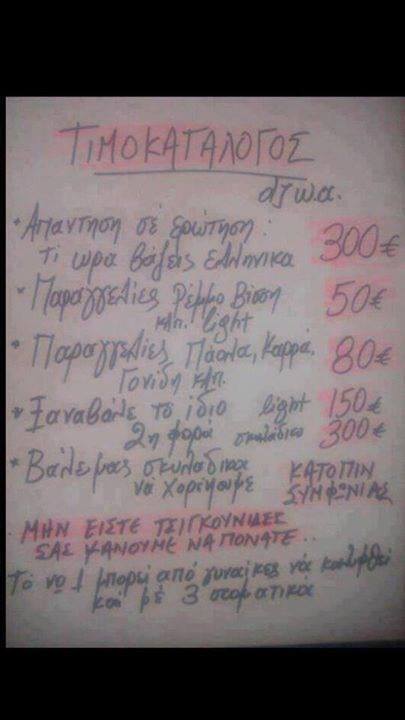 ΤΙΜΟΚΑΤΑΛΟΓΟΣ
dτωα.
* Απαντηση σέ ερώτηση: 300€
τι ωρα βάζεις Ελληνικα
* Παραγγελίες Ρέμμο Βίσση 50€
κλπ. light
* Παραγγελίες Πάολα, Καρρά, 80€
Γονίδη κλπ.
* Ξαναβάλε το ίδιο light 150€
2η φορά σκυλάδικο 300€
* Βάλε μας σκυλάδικα ΚΑΤΟΠΙΝ
να χορέψουμε ΣΥΜΦΩΝΙΑΣ
ΜΗΝ ΕΙΣΤΕ ΤΣΙΓΚΟΥΝΙΔΕΣ
ΣΑΣ ΚΑΝΟΥΜΕ ΝΑ ΠΟΝΑΤΕ..
Τό νο 1 μπορεί από γυναίκες νά καλυφθεί
και μέ 3 στοματικά